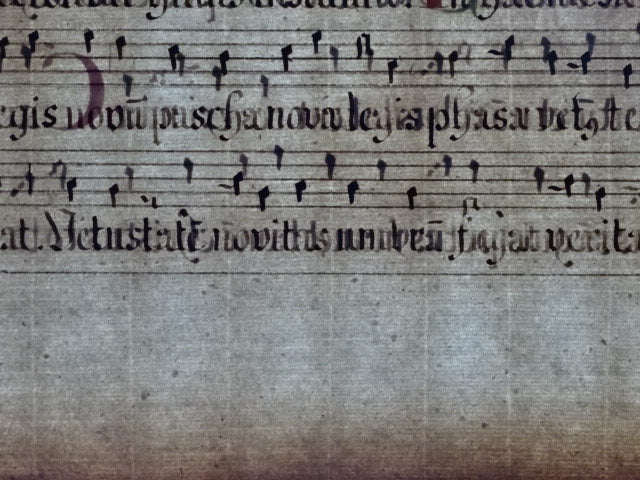 egis novū pascha nova legis phase vetꝰ te
at. Vetustatē novitas umbrā fugat verita